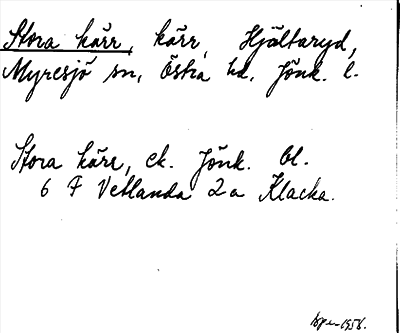 Stora kärr, kärr, Hjältaryd,
Myresjö sn, Östra hd. Jönk. l.
Stora kärr, ek. Jönk. bl.
6 F Vetlanda 2a Klacka.
1958.